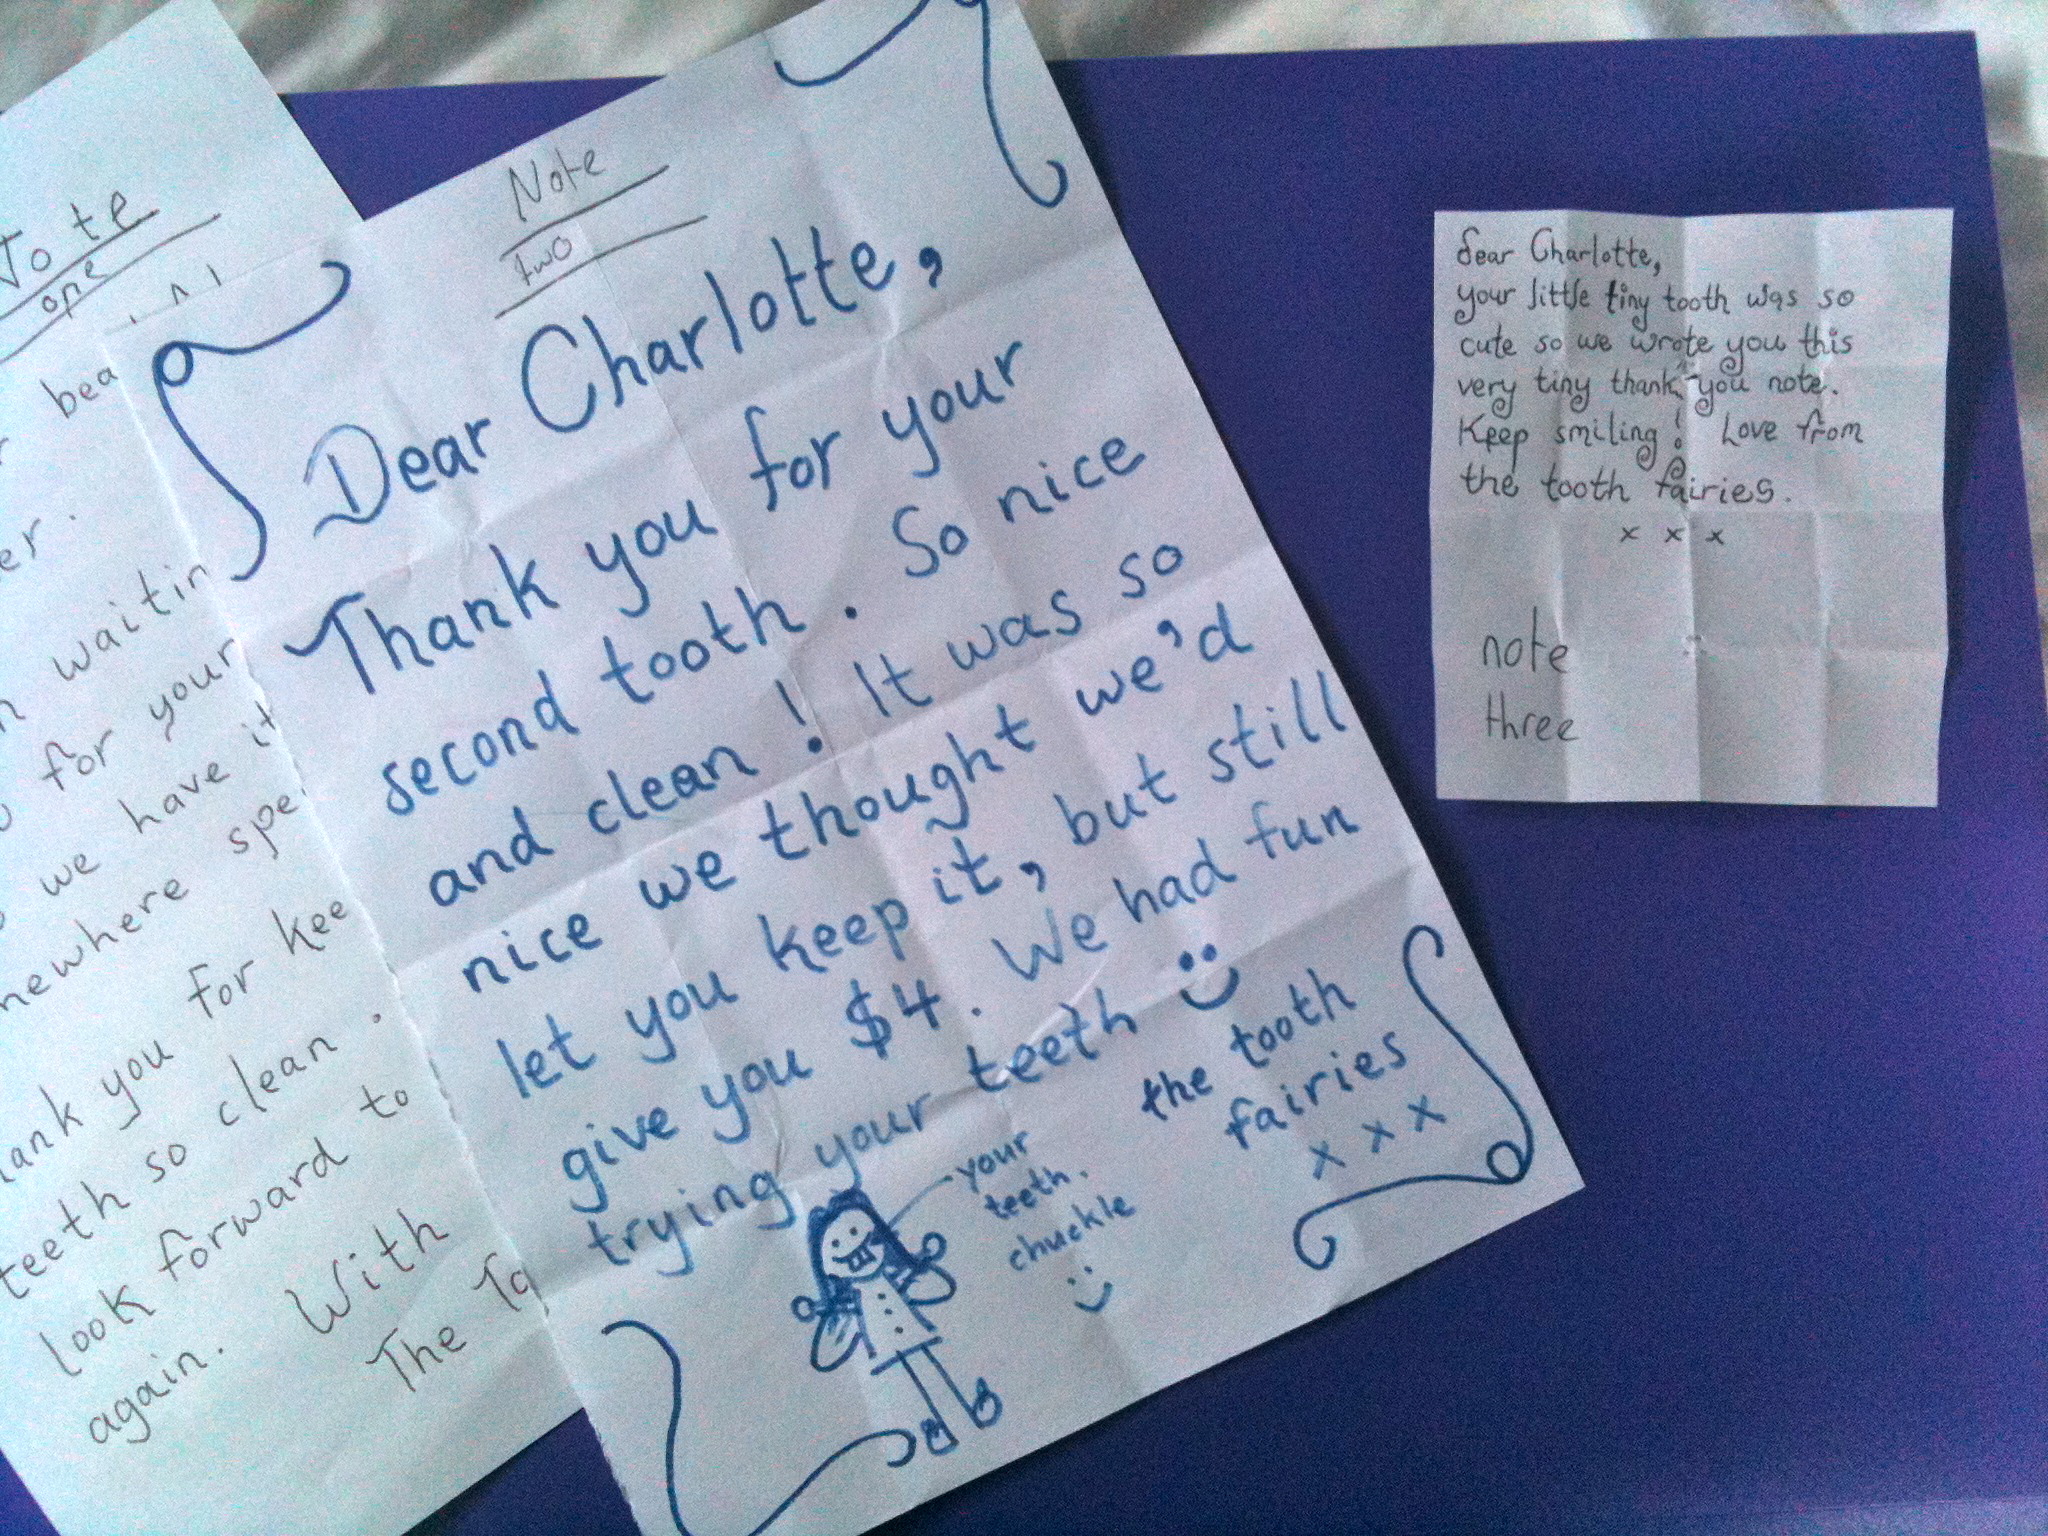 Note
one
bea
er.
waitin
for your
we have it
newhere spe
ank you for kee
teeth so clean.
look forward to
again. With
The To
Note
two
Dear Charlotte,
Thank you for your
second tooth. So nice
and clean! It was so
nice we thought we'd
let you keep it, but still
give you $4. We had fun
trying your teeth
the tooth
fairies
x x x
your
teeth.
chuckle
dear Charlotte,
your little tiny tooth was so
cute so we wrote you this
very tiny thank-you note.
Keep smiling! Love from
the tooth fairies.
x x x
note
three